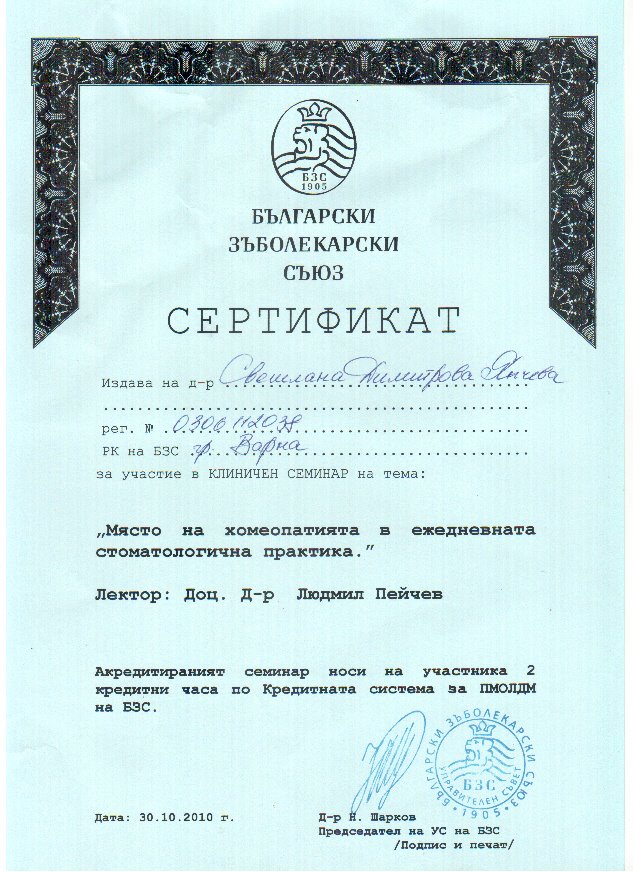 БЗС
1905
БЪЛГАРСКИ
ЗЪБОЛЕКАРСКИ
СЪЮЗ
СЕРТИФИКАТ
Издава на д-р Светлана Димитрова Янчева
рег. № 0306112039
РК на БЗС гр. Варна
за участие в КЛИНИЧЕН СЕМИНАР на тема:
„Място на хомеопатията в ежедневната
стоматологична практика.”
Лектор: Доц. Д-р Людмил Пейчев
Акредитираният семинар носи на участника 2
кредитни часа по Кредитната система за ПМОЛДМ
на БЗС.
БЪЛГАРСКИ ЗЪБОЛЕКАРСКИ СЪЮЗ
УПРАВИТЕЛЕН СЪВЕТ
БЗС
1905
Дата: 30.10.2010 г.
Д-р Н. Шарков
Председател на УС на БЗС
/Подпис и печат/